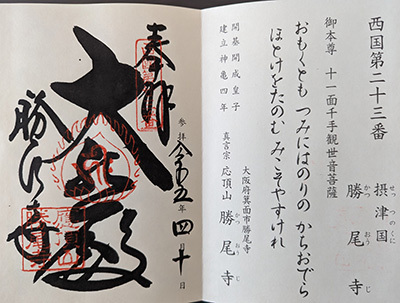 西国第二十三番
摂津国
せっつのくに
勝尾寺
かつおうじ
御本尊 十一面千手観世音菩薩
おもくとも つみにはのりの かちおでら
ほとけをたのむ みこそやすけれ
開基開成皇子
建立神亀四年
大阪府箕面市勝尾寺
真言宗 応頂山 勝尾寺
かつおうじ
奉拝
参拝 令和五年 四月十日
大悲殿
勝尾寺